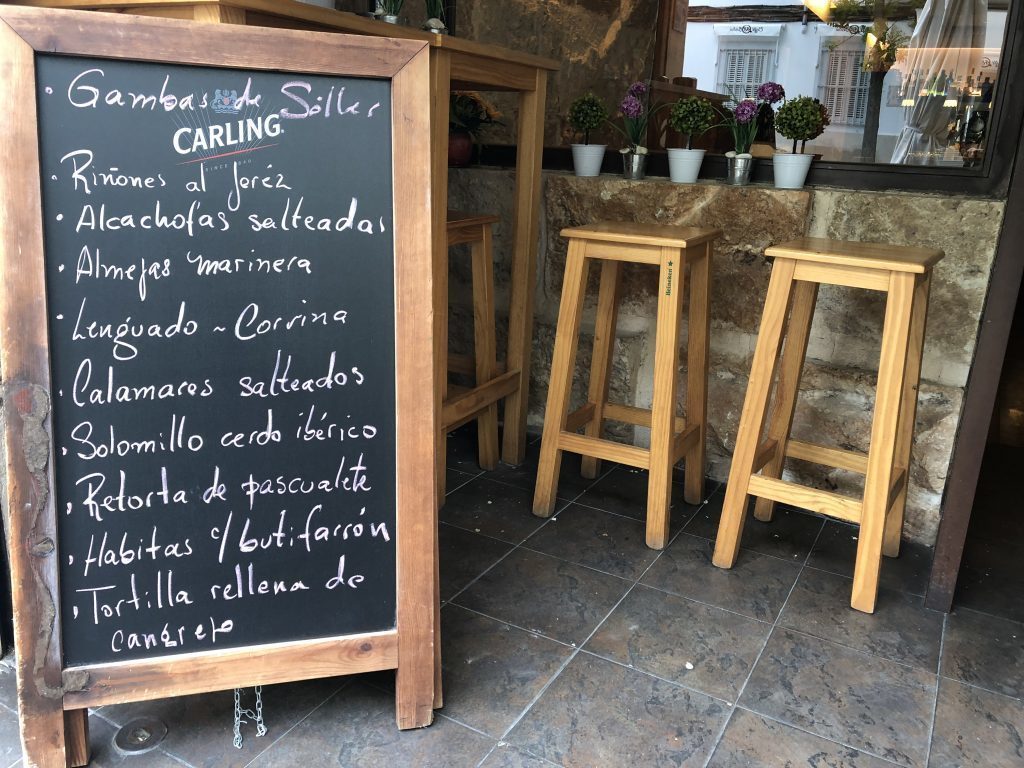 · Gambas de Sóller
CARLING
SINCE 1840
· Riñones al Jeréz
· Alcachofas salteadas
· Almejas marinera
· Lenguado ~ Corvina
· Calamares salteados
· Solomillo cerdo ibérico
· Retorta de pascualete
· Habitas c/ butifarrón
· Tortilla rellena de
cangrejo
Heineken